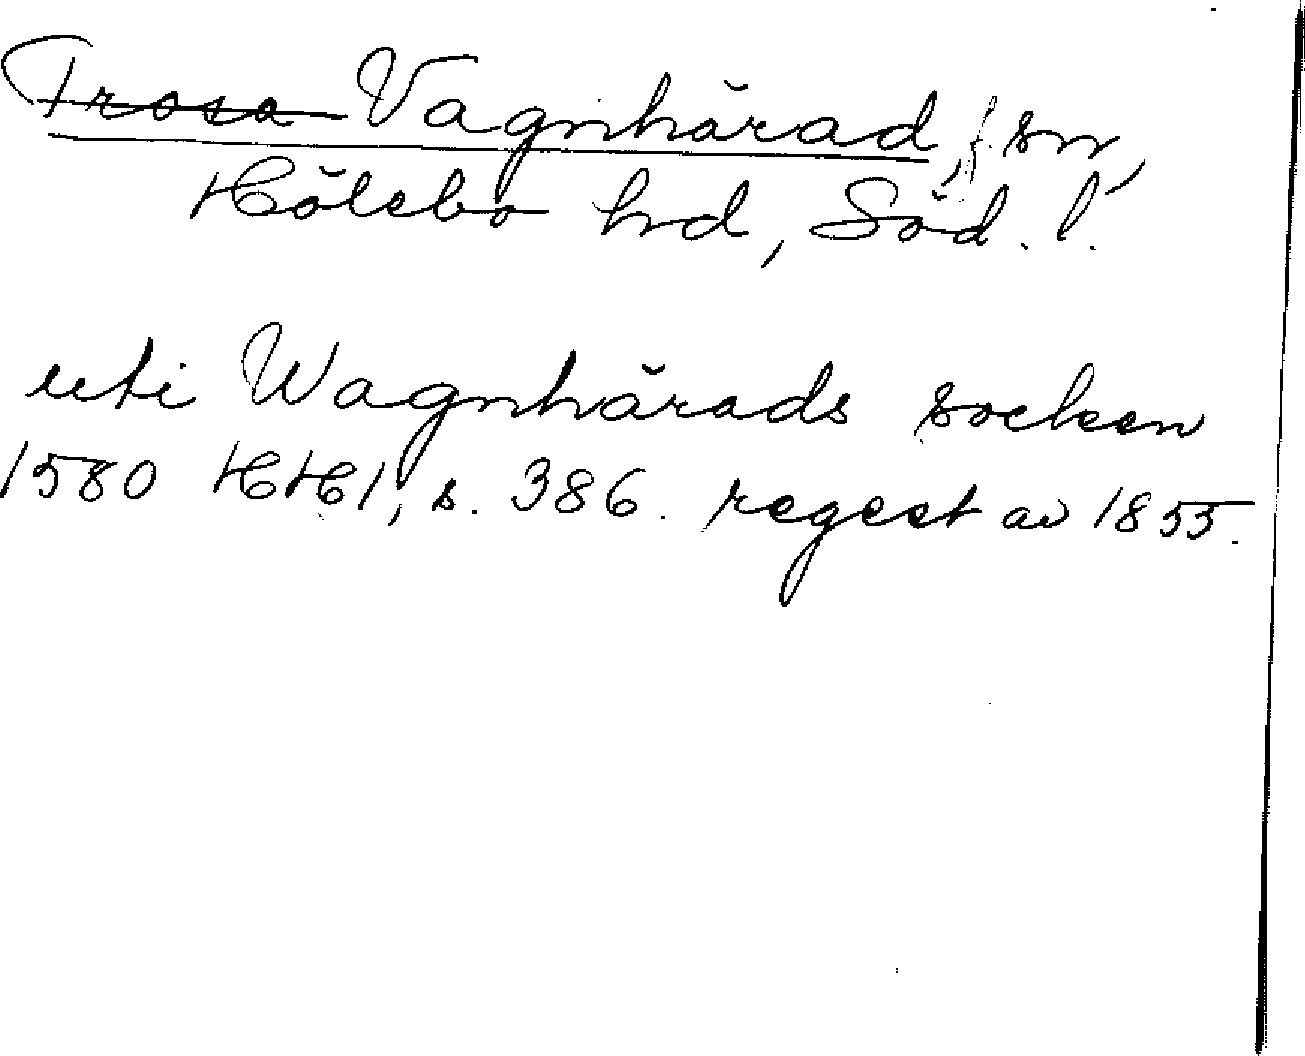 Trosa Vagnhärad, f. sn,
Hölebo hd, Söd. l.
uti Wagnhärads socken
1580 HH 1, s. 386. regest av 1855.